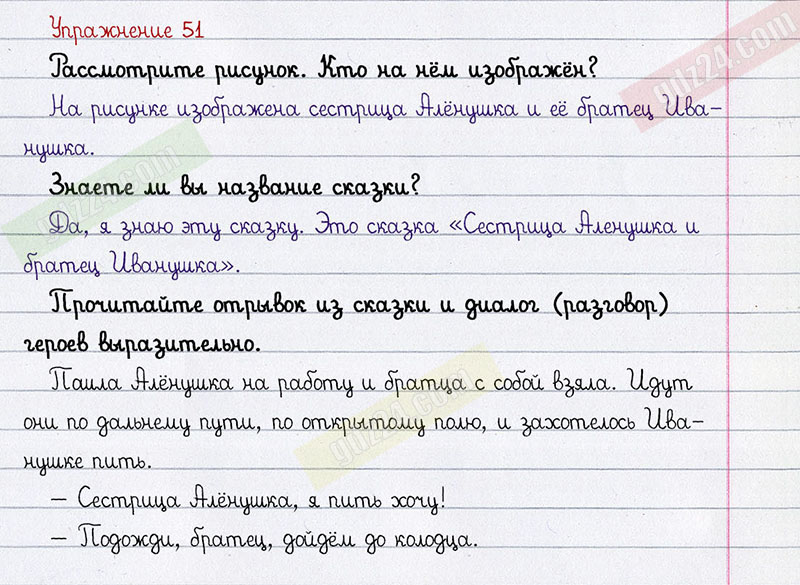 Упражнение 51
Рассмотрите рисунок. Кто на нём изображён?
На рисунке изображена сестрица Алёнушка и её братец Ива-
нушка.
Знаете ли вы название сказки?
Да, я знаю эту сказку. Это сказка «Сестрица Аленушка и
братец Иванушка».
Прочитайте отрывок из сказки и диалог (разговор)
героев выразительно.
Пашла Алёнушка на работу и братца с собой взяла. Идут
они по дальнему пути, по открытому полю, и захотелось Ива-
нушке пить.
– Сестрица Алёнушка, я пить хочу!
– Подожди, братец, дойдём до колодца.
gdz24.com
gdz24.com
gdz24.com